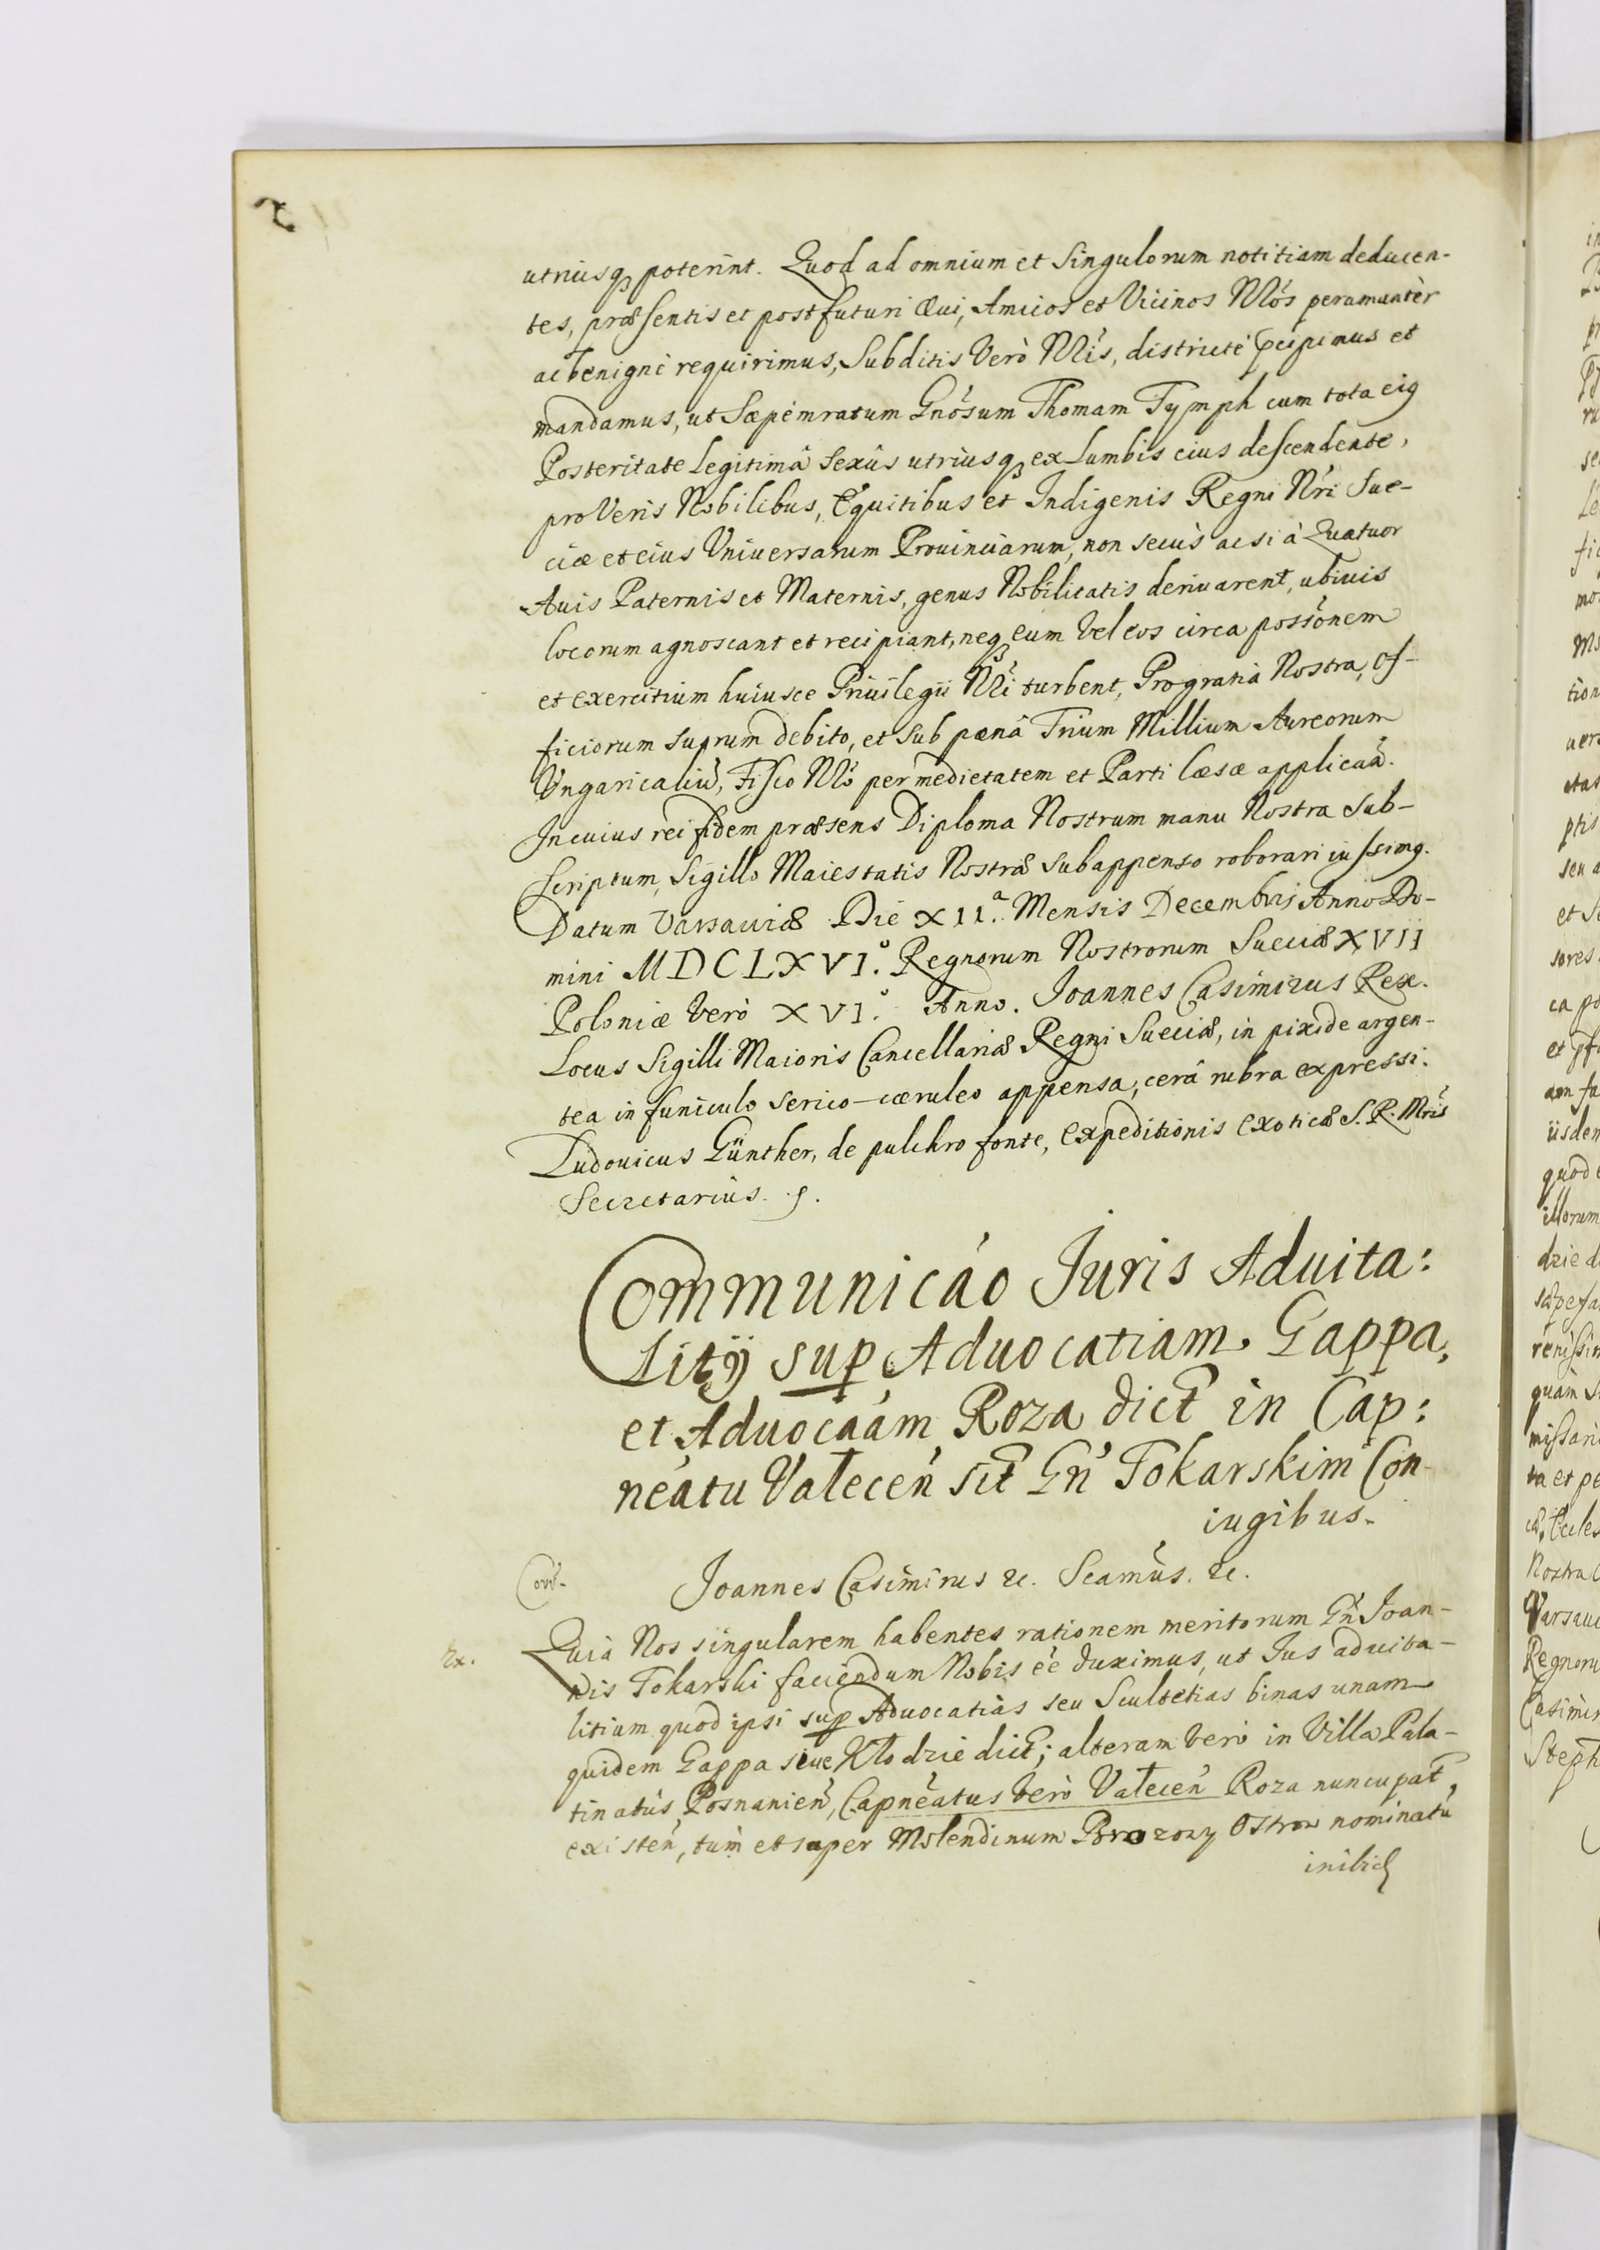 utriusq3 poterint. Quod ad omnium et Singulorum notitiam deducen-
tes, præsentis et postfuturi Æui, Amicos et Vicinos Nrós peramantèr
ac benignè requirimus, Subditis Verò Nrís, districtè pcipimus et
mandamus, ut Sæpèmratum Gnósum Thomam Tymph cum tota eig
Posteritate Legitimâ Sexûs utriusq3 ex Lumbis eius descendente,
pro Veris Nobilibus, Equitibus et Indigenis Regni Nrí Sue-
ciæ et eius Vniuersarum Prouinciarum, non secùs ac si à Quatuor
Auis Paternis et Maternis, genus Nobilitatis deriuarent, ubiuis
locorum agnoscant et recipiant, neq3 eum Vel eos circa possónem
et exercitium huiusce Priuilegii Nrí turbent, Pro gratiâ Nostra, Of-
ficiorum suorum debito, et sub pœnâ Trium Millium Aureorum
Vngaricaliũ, Fisco Nró per medietatem et Parti læsæ applicań.
In cuius rei fidem præsens Diploma Nostrum manu Nostra Sub-
scriptum, Sigillo Maiestatis Nostræ subappenso roborari iussimg.
Datum Varsauiæ Die XII.a Mensis Decembris Anno Do-
mini MDCLXVI.o Regnorum Nostrorum Sueciæ XVII
Poloniæ Verò XVI.o Anno. Joannes Casimirus Rex.
Locus Sigilli Maioris Cancellariæ Regni Sueciæ, in pixide argen-
tea in funiculo serico-cæruleo appensa, cerâ rubra expressi.
Ludouicus Günther, de pulchro fonte, Expeditionis Exoticæ S. R. Mtis
Secretarius.
Communicáo Juris Aduita:
litÿ sup Aduocatiam Gappa,
et Aduocaám Roza dict in Cap:
neátu Vałeceń sit Gń Tokarskim Con-
iugibus.
Joannes Casimirus &c. Scamús. &c.
Quia Nos singularem habentes rationem meritorum Gń Joan-
nis Tokarski faciendum Nobis eé duximus, ut Jus aduita-
litium quod ipsi sup Aduocatias seu Scultetias binas unam
quidem Gappa siue Kłodzie dict; alteram verò in Villa Pala-
tinatûs Posnanień, Capneátus verò Vałeceń Roza nuncupat,
existeń, tùm et super Molendinum Ostrow nominatũ
inibiq